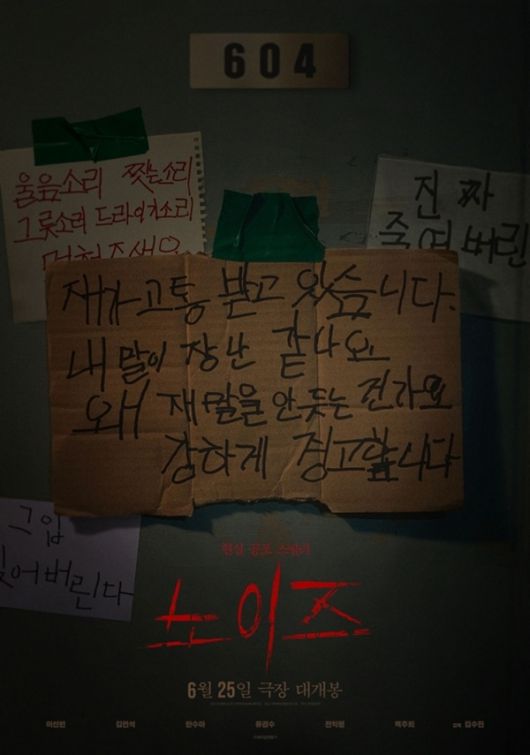 604
소리 소리
그릇소리 드라이기소리
진짜
죽여버린
재가 고통 받고 있습니다.
내 말이 장난 같나요
왜 재 말을 안 듣는 건가요
강하게 경고합니다
그입
찢어버린다
현실 공포 스릴러
노이즈
6월 25일 극장 대개봉
이선빈 김민석 한수아 류경수 전익령 백주희 감독 김수진